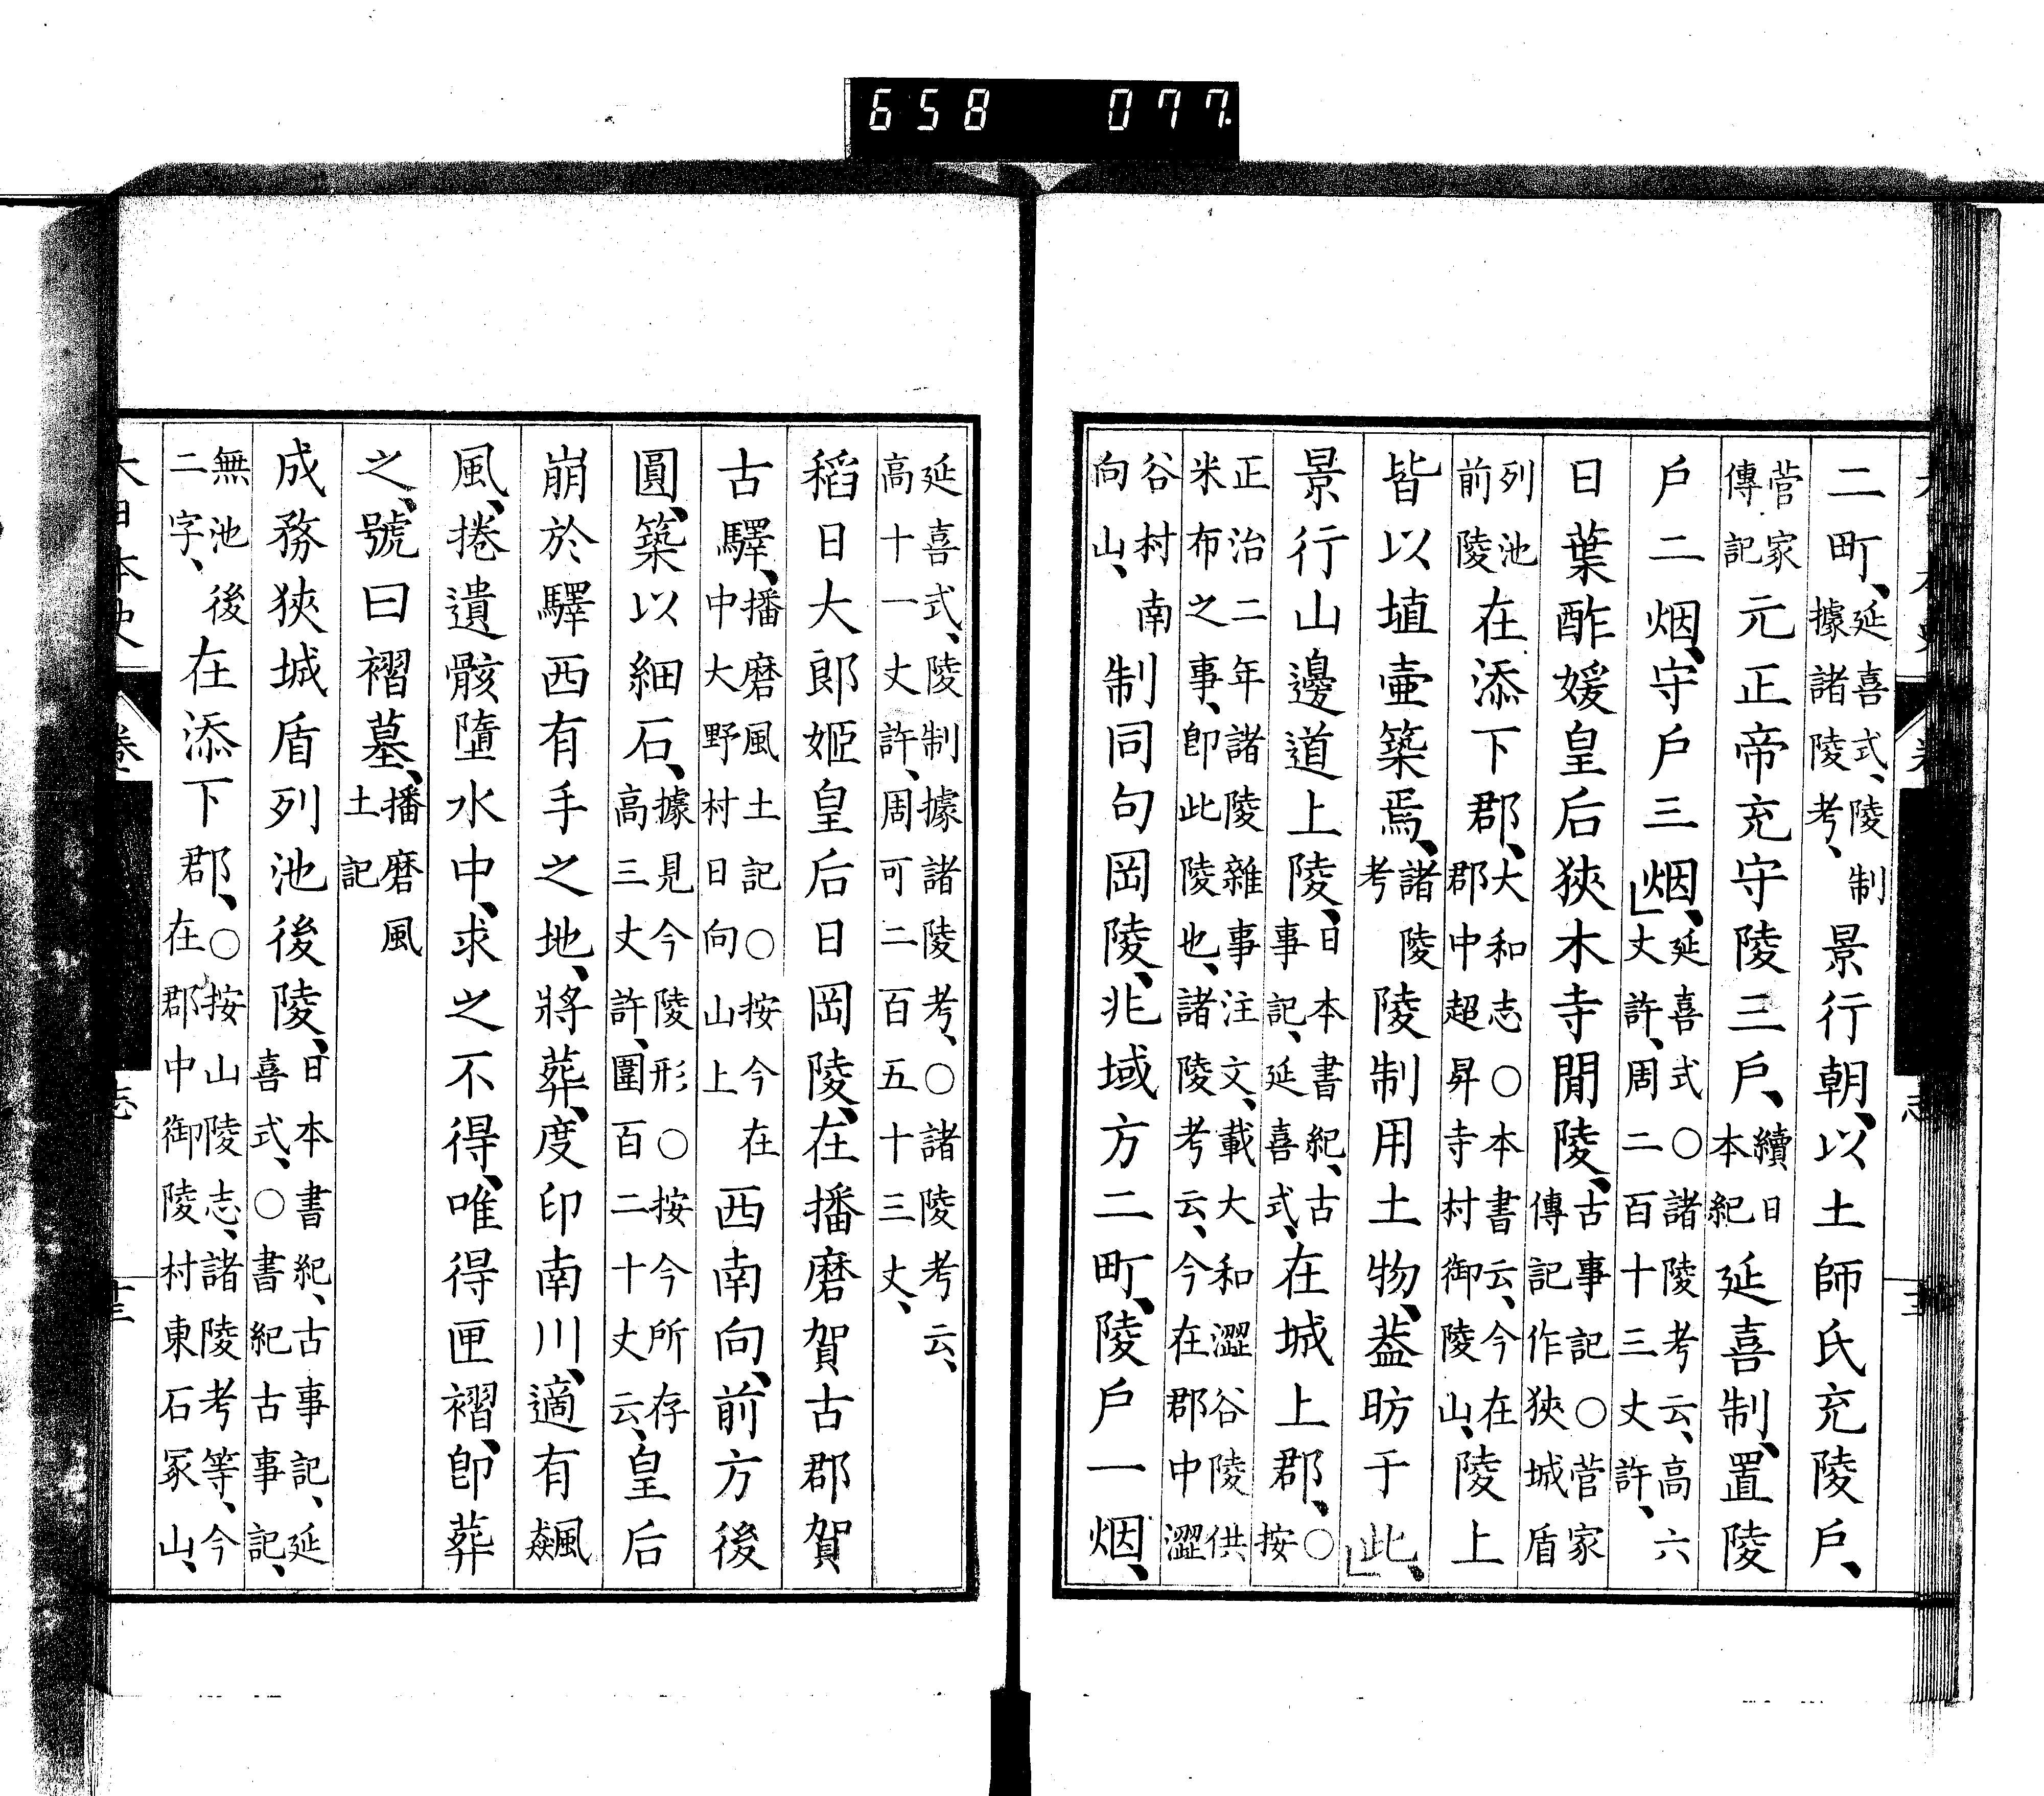 658 077.
二町、延喜式、陵制據諸陵考、景行朝、以土師氏充陵戶、
菅家傳記元正帝充守陵三戶、續日本紀延喜制、置陵
戶二烟、守戶三烟、延喜式○諸陵考云、高六丈許、周二百十三丈許、
日葉酢媛皇后狹木寺間陵、古事記○菅家傳記作狹城盾
列池前陵在添下郡、大和志○本書云、今在郡中超昇寺村御陵山、陵上
皆以埴壷築焉、諸陵考陵制用土物、葢昉于此、
景行山邊道上陵、日本書紀、古事記、延喜式、在城上郡、○按
正治二年諸陵雜事注文、載大和澀谷陵供米布之事、卽此陵也、諸陵考云、今在郡中澀
谷村南向山、制同句岡陵、兆域方二町、陵戶一烟、
延喜式、陵制據諸陵考、○諸陵考云、高十一丈許、周可二百五十三丈、
稻日大郎姬皇后日岡陵、在播磨賀古郡賀
古驛、播磨風土記○按今在中大野村日向山上西南向、前方後
圓、築以細石、據見今陵形○按今所存高三丈許、圍百二十丈云、皇后
崩於驛西有手之地、將葬、度印南川、適有飈
風、捲遺骸墮水中、求之不得、唯得匣褶、卽葬
之、號曰褶墓、播磨風土記
成務狹城盾列池後陵、日本書紀、古事記、延喜式、○書紀古事記、
無池後二字、在添下郡、○按山陵志、諸陵考等、今在郡中御陵村東石冢山、